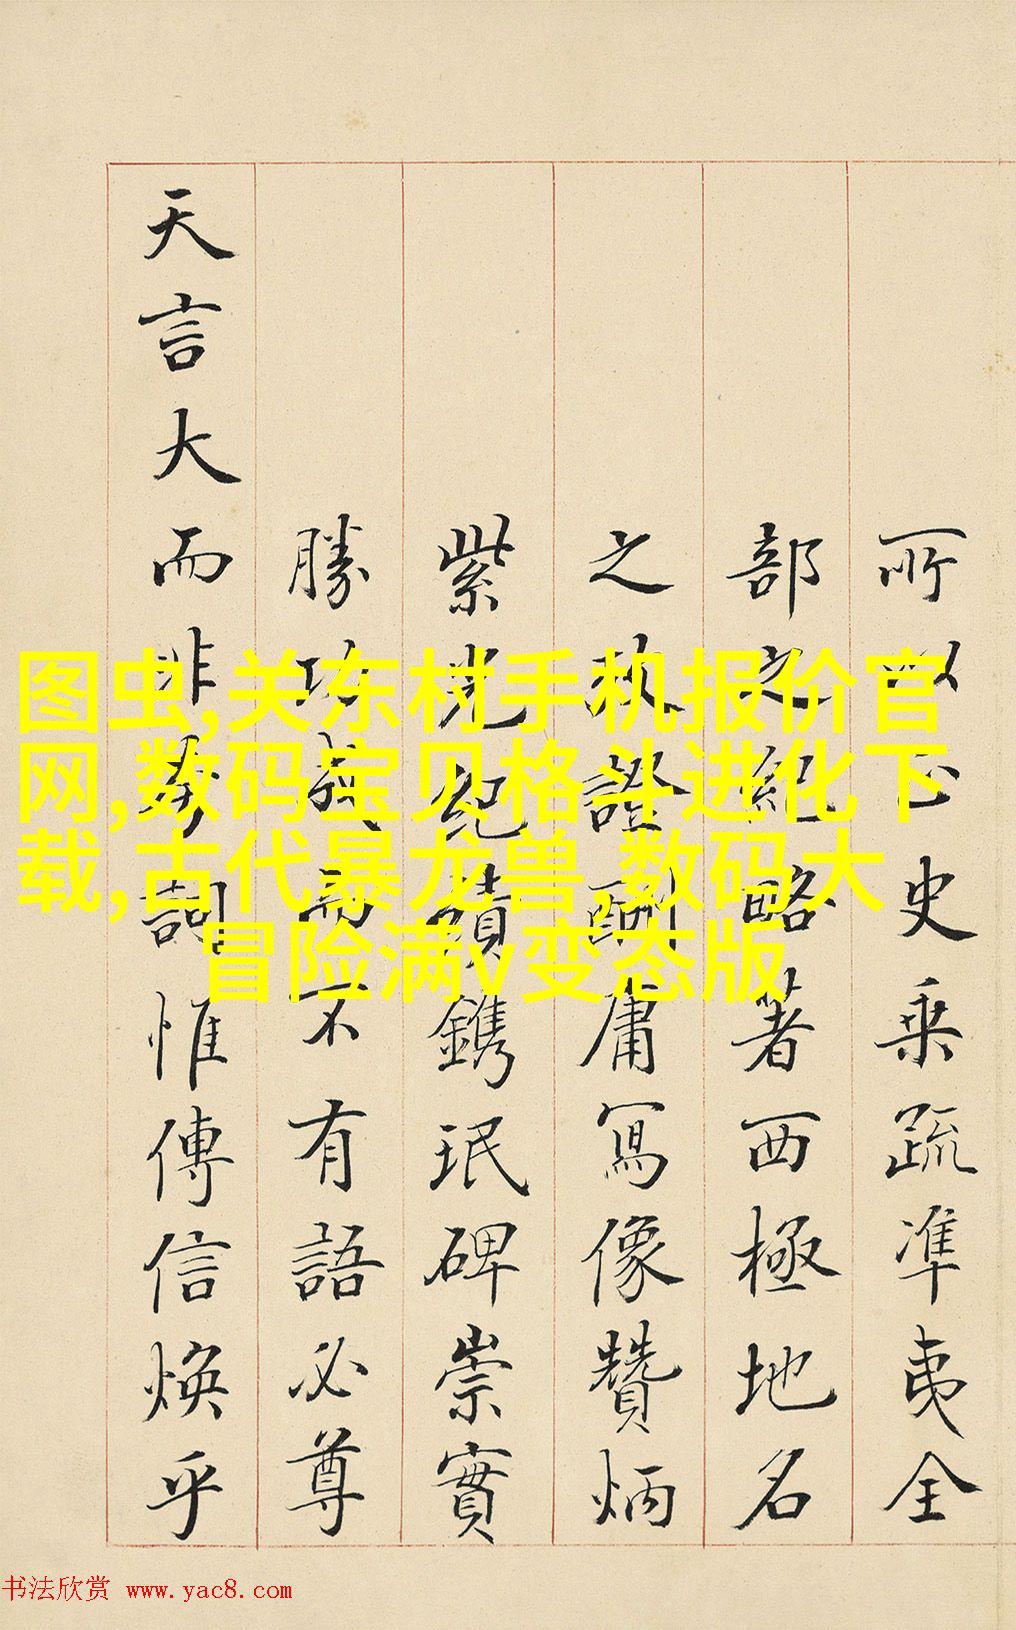 所以正史乗疏凖夷全
部之紀略著西極地名
之攷證酬庸寫像贊炳
紫光紀績鐫珉碑崇實
勝功而不有語必尊
天言大而非夸詞惟傳信煥乎
图虫,关东村手机报价官
网,数码宝贝格斗进化下
载,古代暴龙兽 数码大
冒险满v变态版
书法欣赏 www.yac8.com